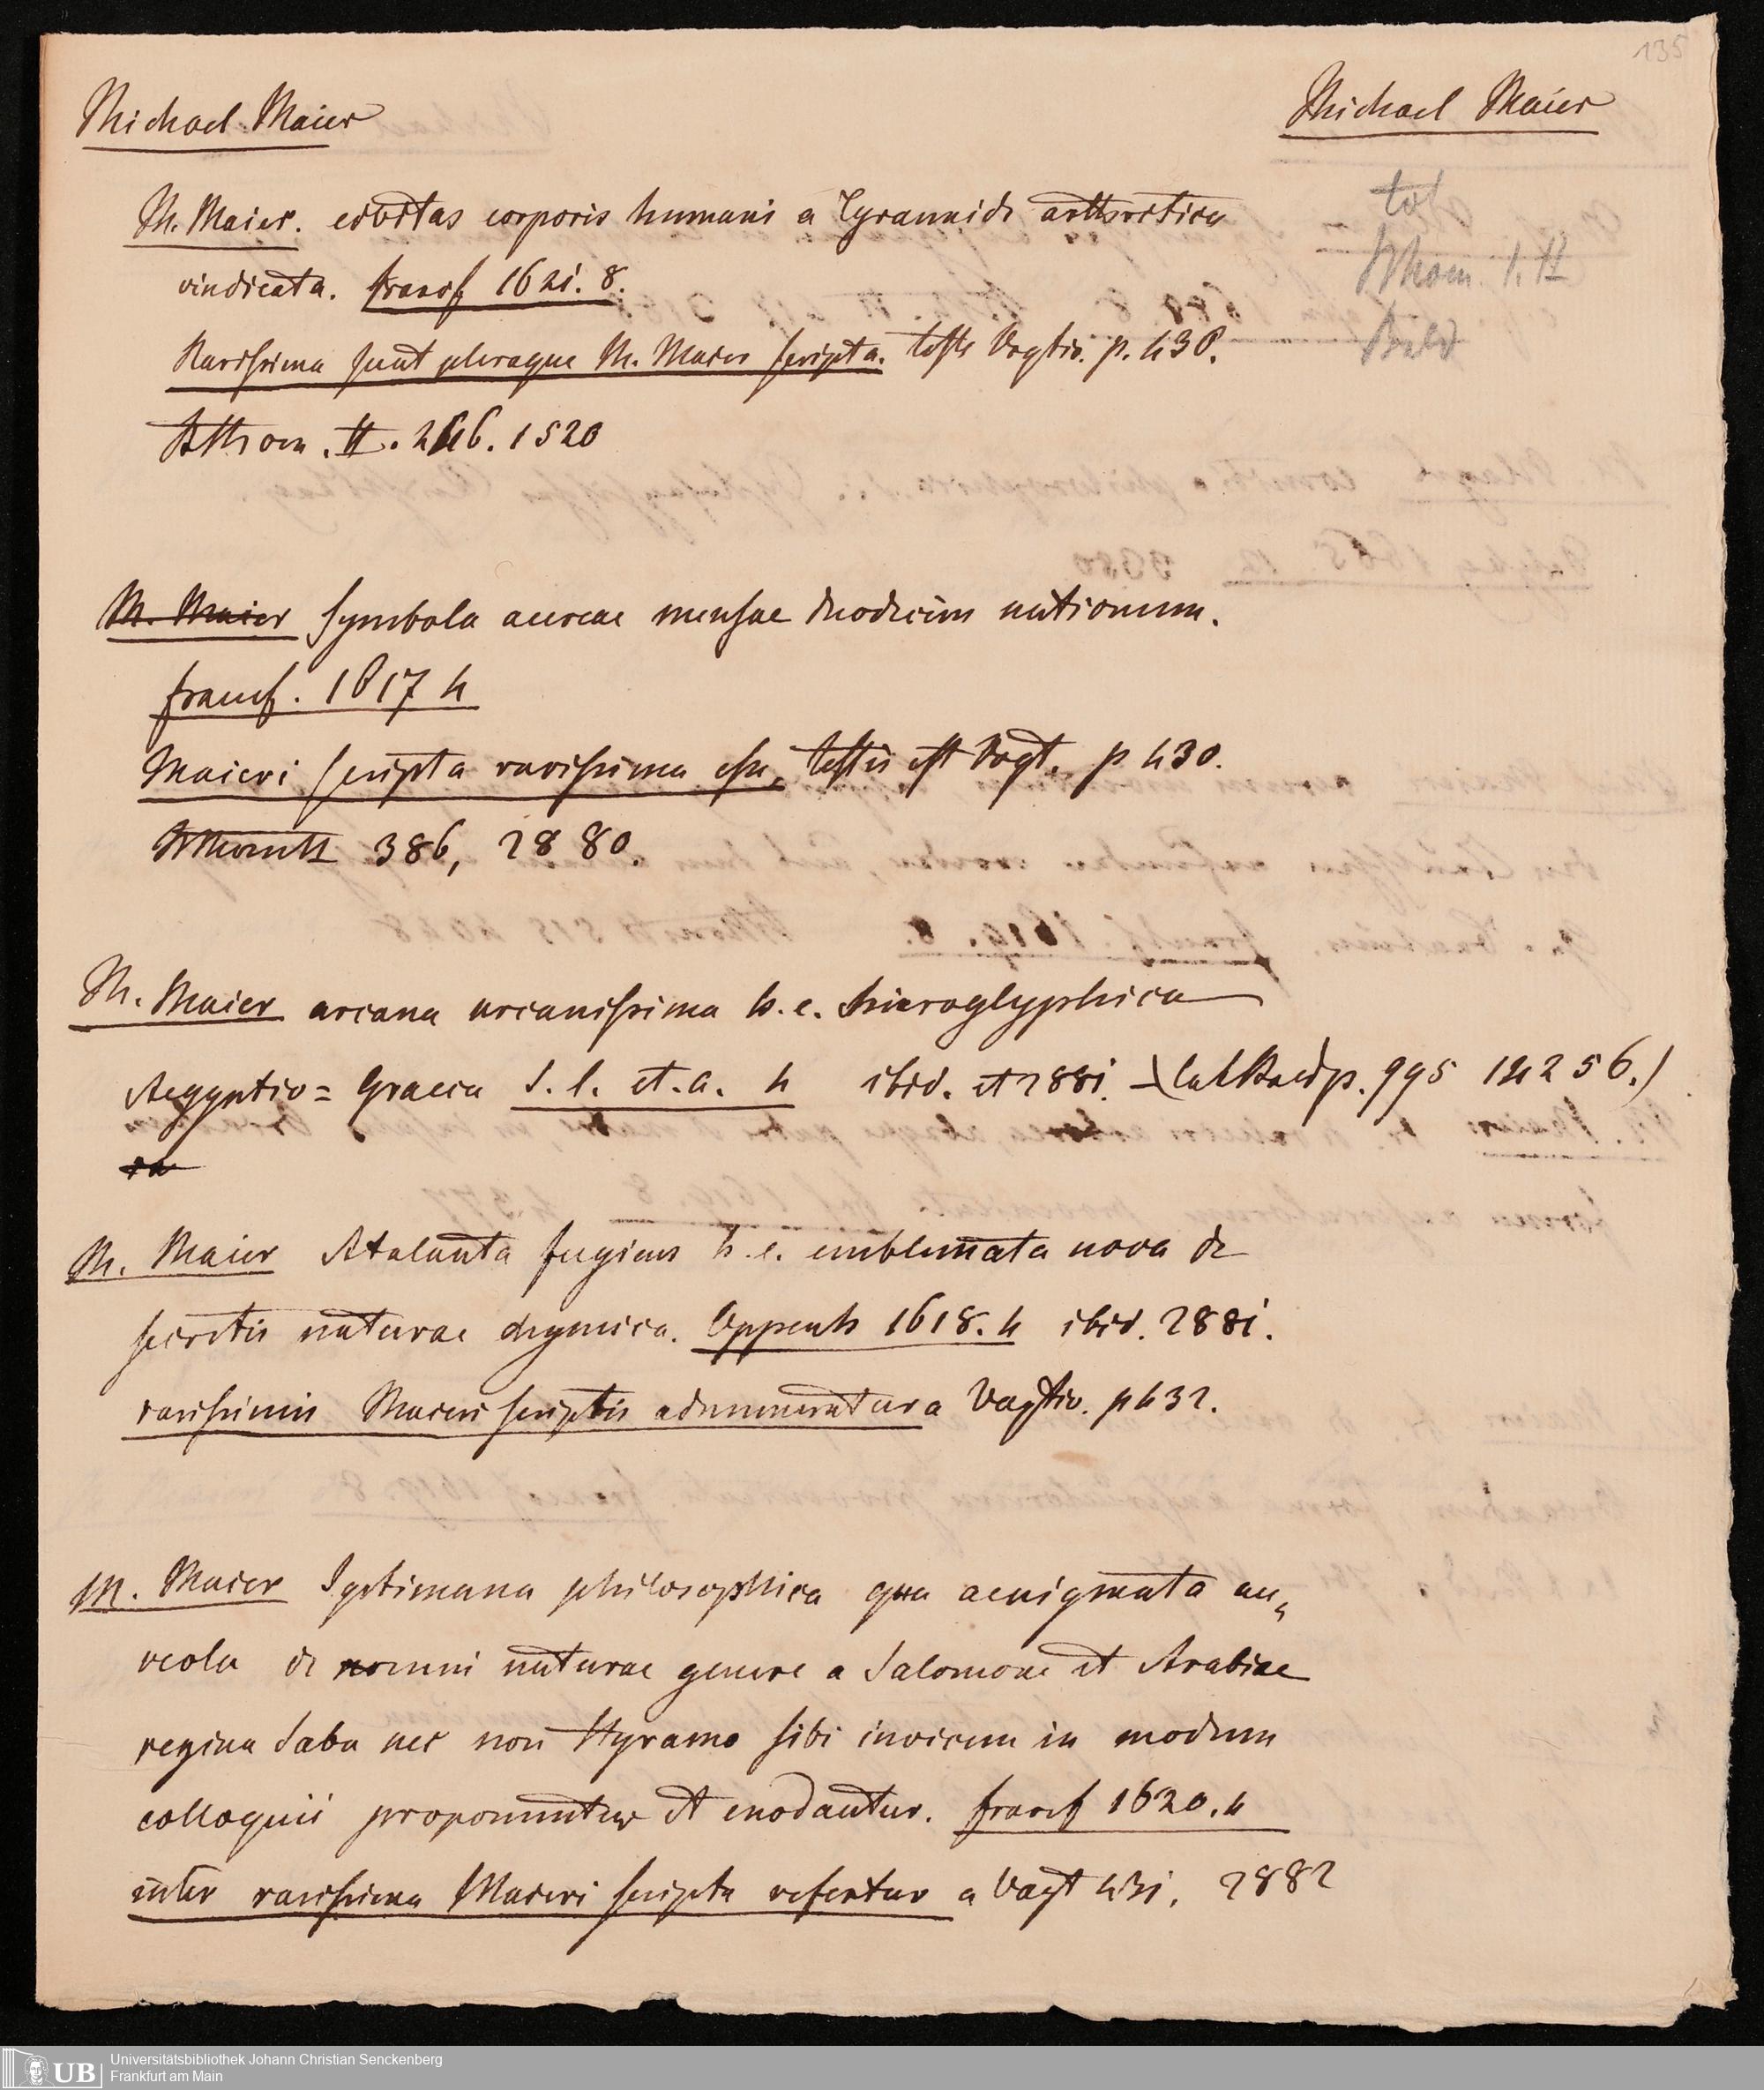 135
Michael Maier
Michael Maier
M. Maier. civitas corporis humani a Tyrannide arthritica
vindicata. francf 1621. 8.
Rarissima sunt pleraque M. Maier scripta. teste Vogtio. p. 430.
II. 1520
M. Maier Symbola aureae mensae duodecim nationum.
francf. 1617 4
Maieri scripta rarissima esse, testis est Vogt. p 430.
386, 2880.
M. Maier arcana arcanissima h. e. hieroglyphica
Aegyptio= Graeca S. l. et. a. 4 ibid. et 2881. p. 995 14256.)
ra
M. Maier Atalanta fugiens h. e. emblemata nova de
secretis naturae chymica. Oppenh 1618. 4 ibid. 2881.
rarissimis Maieri scriptis adnumeratur a Vogtio. p 432.
M. Maier Septimana philosophica qua aenigmata au„
reola de omni naturae genere a Salomone et Arabiae
regina Saba nec non Hyramo sibi invicem in modum
colloquii proponuntur et enodantur. francf 1620. 4
inter rarissima Maieri scripta refertur a Vogt 431. 2882
Bild
UB Universitätsbibliothek Johann Christian Senckenberg
Frankfurt am Main